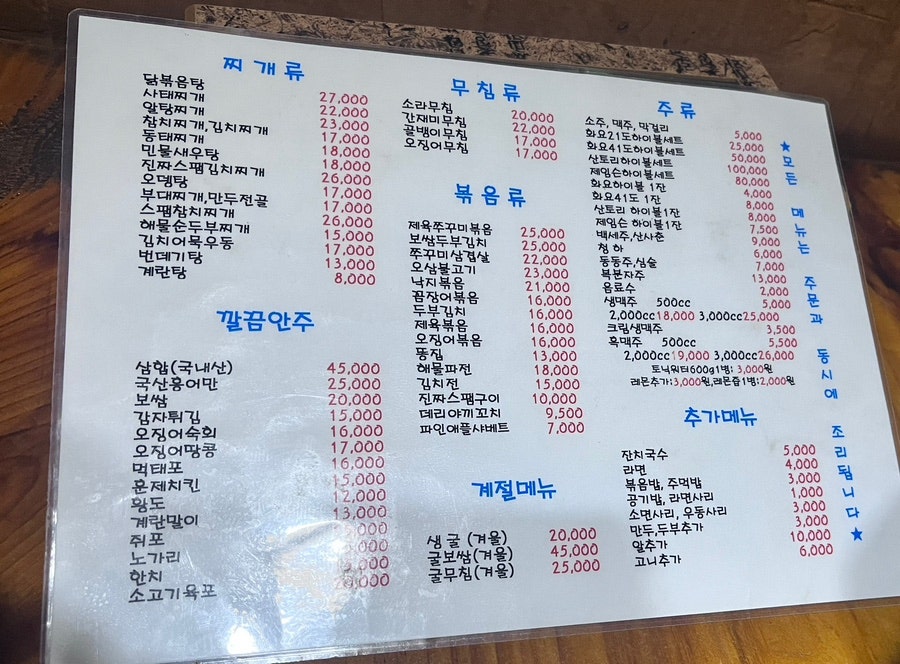 찌개류
닭볶음탕 27,000
사태찌개 22,000
알탕찌개 23,000
참치찌개,김치찌개 17,000
동태찌개 18,000
민물새우탕 18,000
진짜스팸김치찌개 26,000
오뎅탕 17,000
부대찌개,만두전골 17,000
스팸참치찌개 26,000
해물순두부찌개 15,000
김치어묵우동 17,000
번데기탕 13,000
계란탕 8,000
깔끔안주
삼합(국내산) 45,000
국산홍어만 25,000
보쌈 20,000
감자튀김 15,000
오징어숙회 16,000
오징어땅콩 17,000
먹태포 16,000
훈제치킨 15,000
황도 12,000
계란말이 13,000
쥐포
노가리
한치
소고기육포
무침류
소라무침 20,000
간재미무침 22,000
골뱅이무침 17,000
오징어무침 17,000
볶음류
제육쭈꾸미볶음 25,000
보쌈두부김치 25,000
쭈꾸미삼겹살 22,000
오삼불고기 23,000
낙지볶음 21,000
꼼장어볶음 16,000
두부김치 16,000
제육볶음 16,000
오징어볶음 16,000
똥집 13,000
해물파전 18,000
김치전 15,000
진짜스팸구이 10,000
데리야끼꼬치 9,500
파인애플샤베트 7,000
계절메뉴
생굴 (겨울) 20,000
굴보쌈(겨울) 45,000
굴무침(겨울) 25,000
주류
소주, 맥주, 막걸리 5,000
화요21도하이볼세트 25,000
화요41도하이볼세트 50,000
산토리하이볼세트 100,000
제임슨하이볼세트 80,000
화요하이볼 1잔 4,000
화요41도 1잔 8,000
산토리 하이볼1잔 8,000
제임슨 하이볼1잔 7,500
백세주,산사춘 9,000
청하 6,000
동동주,심술 7,000
복분자주 13,000
음료수 2,000
생맥주 500cc 5,000
2,000cc18,000 3,000cc25,000
크림생맥주 3,500
흑맥주 500cc 5,500
2,000cc19,000 3,000cc26,000
토닉워터600g1병: 3,000원
레몬추가:3,000원,레몬즙1병:2,000원
추가메뉴
잔치국수 5,000
라면 4,000
볶음밥, 주먹밥 3,000
공기밥, 라면사리 1,000
소면사리, 우동사리 3,000
만두,두부추가 3,000
알추가 10,000
고니추가 6,000
★모든 메뉴는 주문과 동시에 조리됩니다★